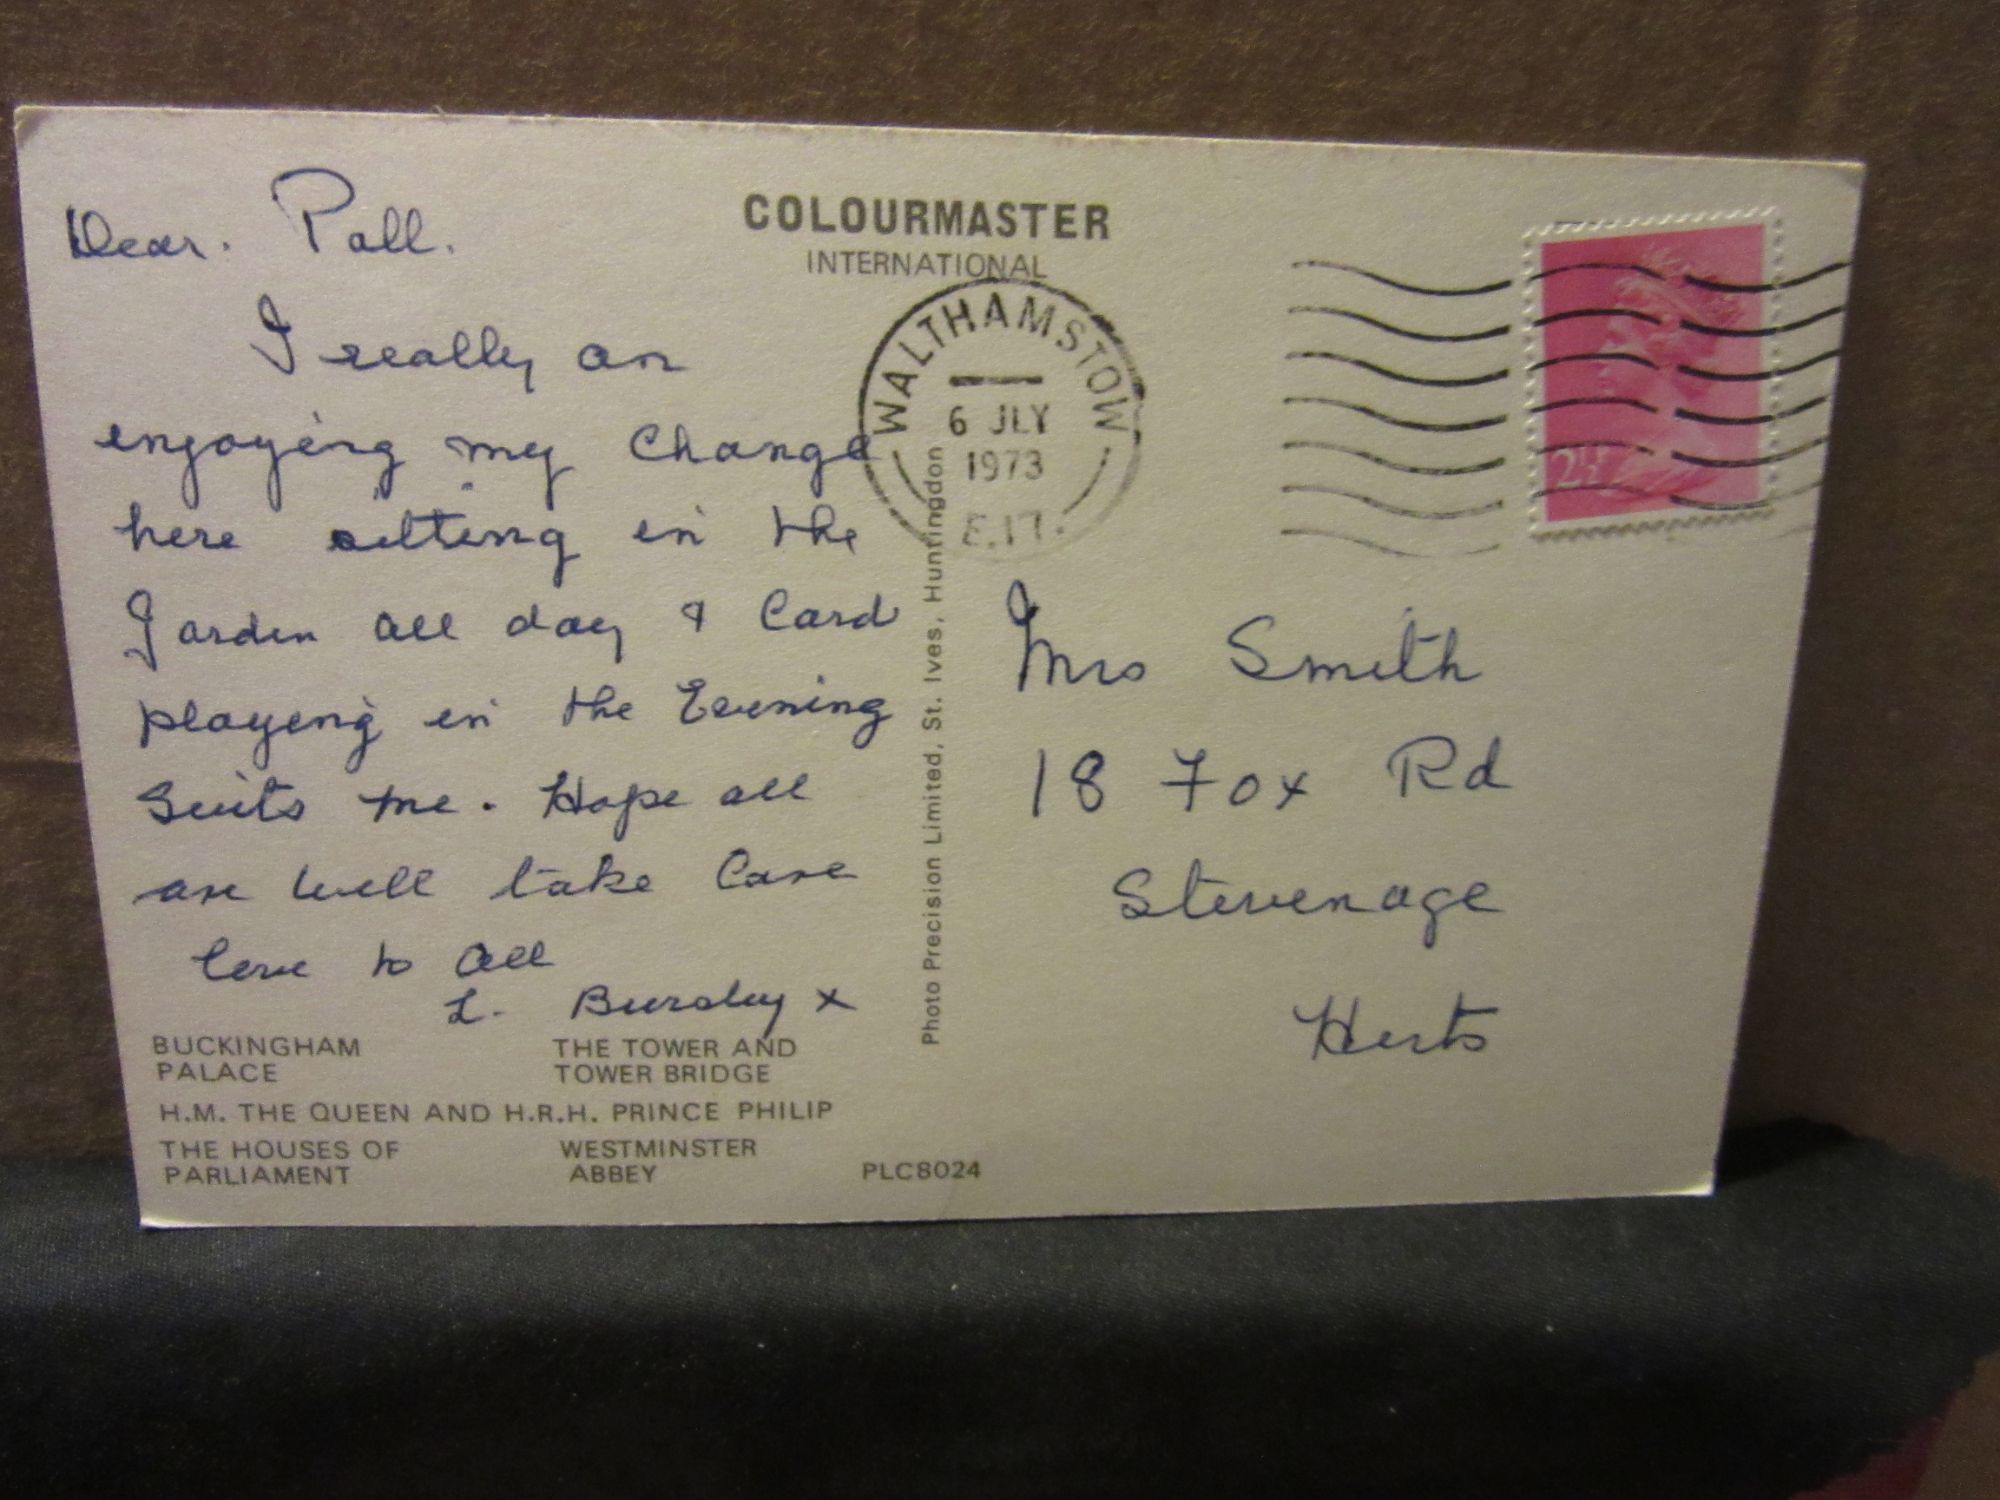 COLOURMASTER
INTERNATIONAL
WALTHAMSTOW
6 JLY
1973
E.17.
2½
Dear. Poll.
I really am
enjoying my Change
here sitting in the
Garden all day & Card
playing in the Evening
Suits me. Hope all
are well take Care
love to all
L. x
Mrs Smith
18 Fox Rd
Stevenage
Herts
Photo Precision Limited, St. Ives, Huntingdon
BUCKINGHAM
PALACE
THE TOWER AND
TOWER BRIDGE
H.M. THE QUEEN AND H.R.H. PRINCE PHILIP
THE HOUSES OF
PARLIAMENT
WESTMINSTER
ABBEY
PLC8024